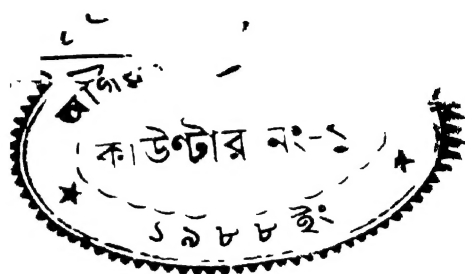 কাউন্টার নং-১
১৯৮৮ ইং